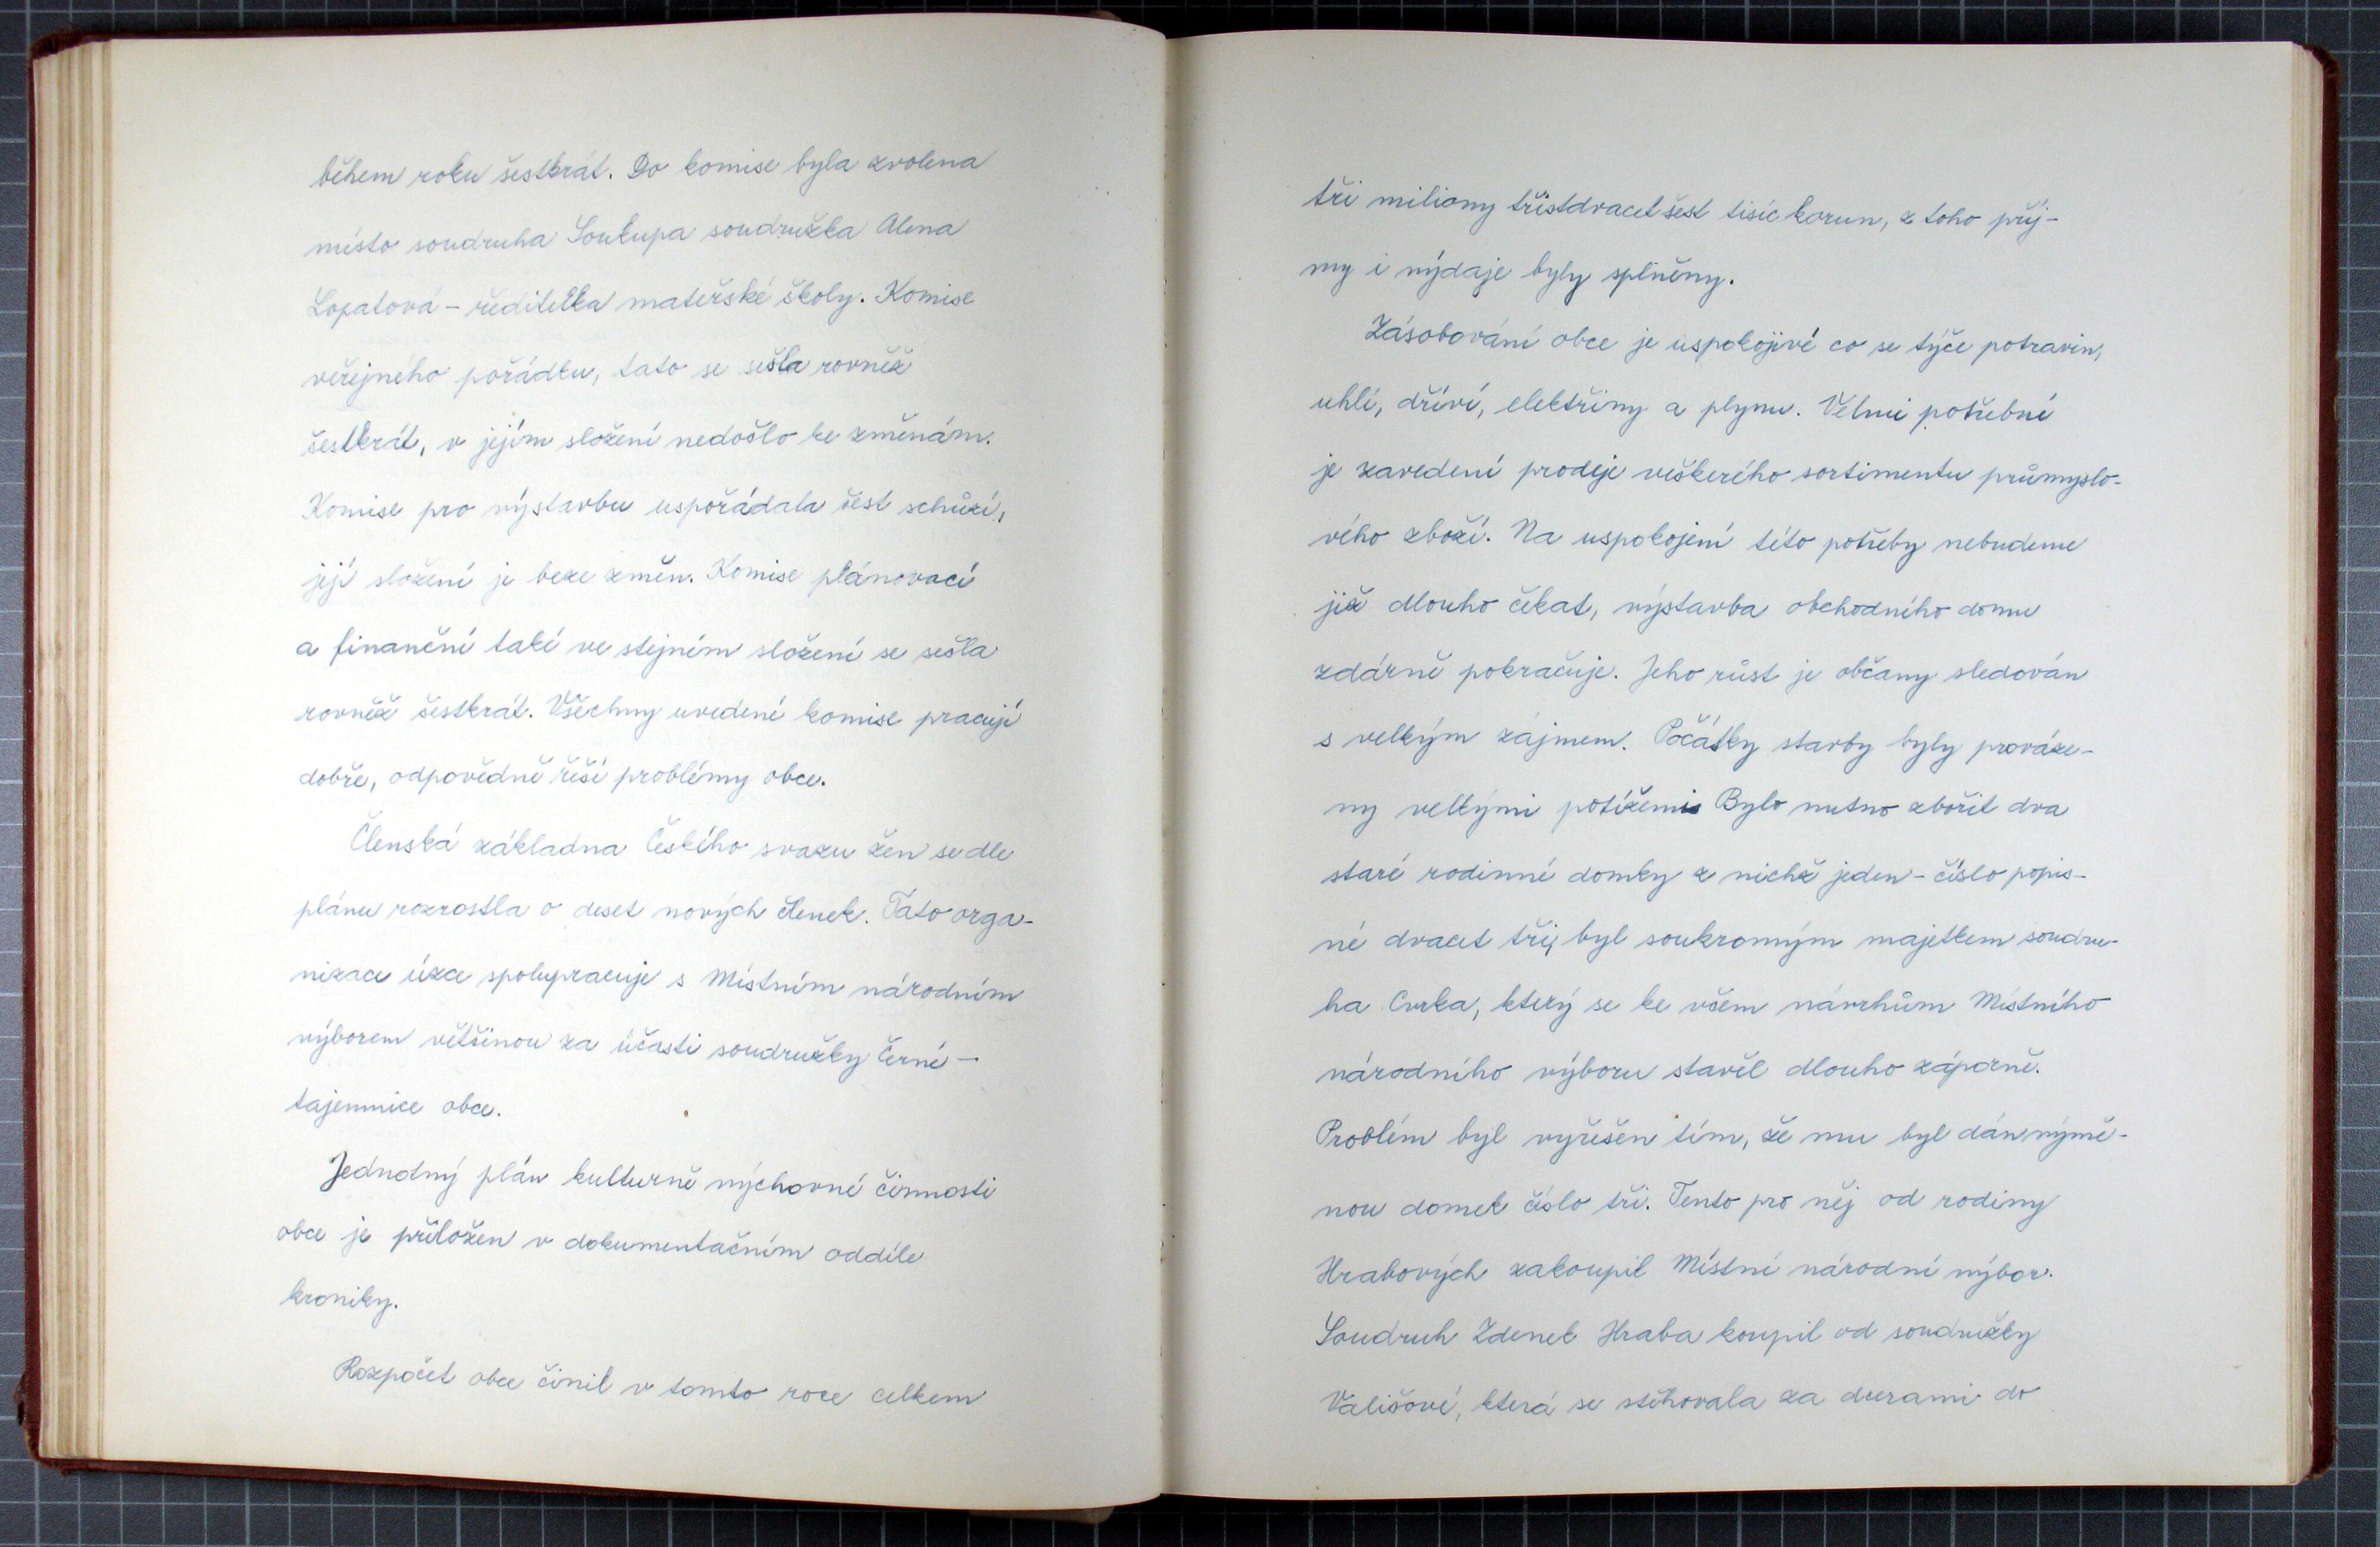 během roku šestkrát. Do komise byla zvolena
místo soudruha Soukupa soudružka Alena
Lopatová – ředitelka mateřské školy. Komise
veřejného pořádku, tato se sešla rovněž
šestkrát, v jejím složení nedošlo ke změnám.
Komise pro výstavbu uspořádala šest schůzí,
její složení je beze změn. Komise plánovací
a finanční také ve stejném složení se sešla
rovněž šestkrát. Všechny uvedené komise pracují
dobře, odpovědně řeší problémy obce.
Členská základna Českého svazu žen se dle
plánu rozrostla o deset nových členek. Tato orga-
nizace úzce spolupracuje s Místním národním
výborem většinou za účasti soudružky Černé –
tajemnice obce.
Jednotný plán kulturně výchovné činnosti
obce je přiložen v dokumentačním oddíle
kroniky.
Rozpočet obce činil v tomto roce celkem
tři miliony třistdvacet šest tisíc korun, z toho příj-
my i výdaje byly splněny.
Zásobování obce je uspokojivé co se týče potravin,
uhlí, dříví, elektřiny a plynu. Velmi potřebné
je zavedení prodeje veškerého sortimentu průmyslo-
vého zboží. Na uspokojení této potřeby nebudeme
již dlouho čekat, výstavba obchodního domu
zdárně pokračuje. Jeho růst je občany sledován
s velkým zájmem. Počátky stavby byly prováze-
ny velkými potížemi. Bylo nutno zbořit dva
staré rodinné domky z nichž jeden – číslo popis-
né dvacet tři, byl soukromým majetkem soudru-
ha Cvrka, který se ke všem návrhům Místního
národního výboru stavěl dlouho záporně.
Problém byl vyřešen tím, že mu byl dán výmě-
nou domek číslo tři. Tento pro něj od rodiny
Hrabových zakoupil Místní národní výbor.
Soudruh Zdenek Hraba koupil od soudružky
Vališové, která se stěhovala za dcerami do